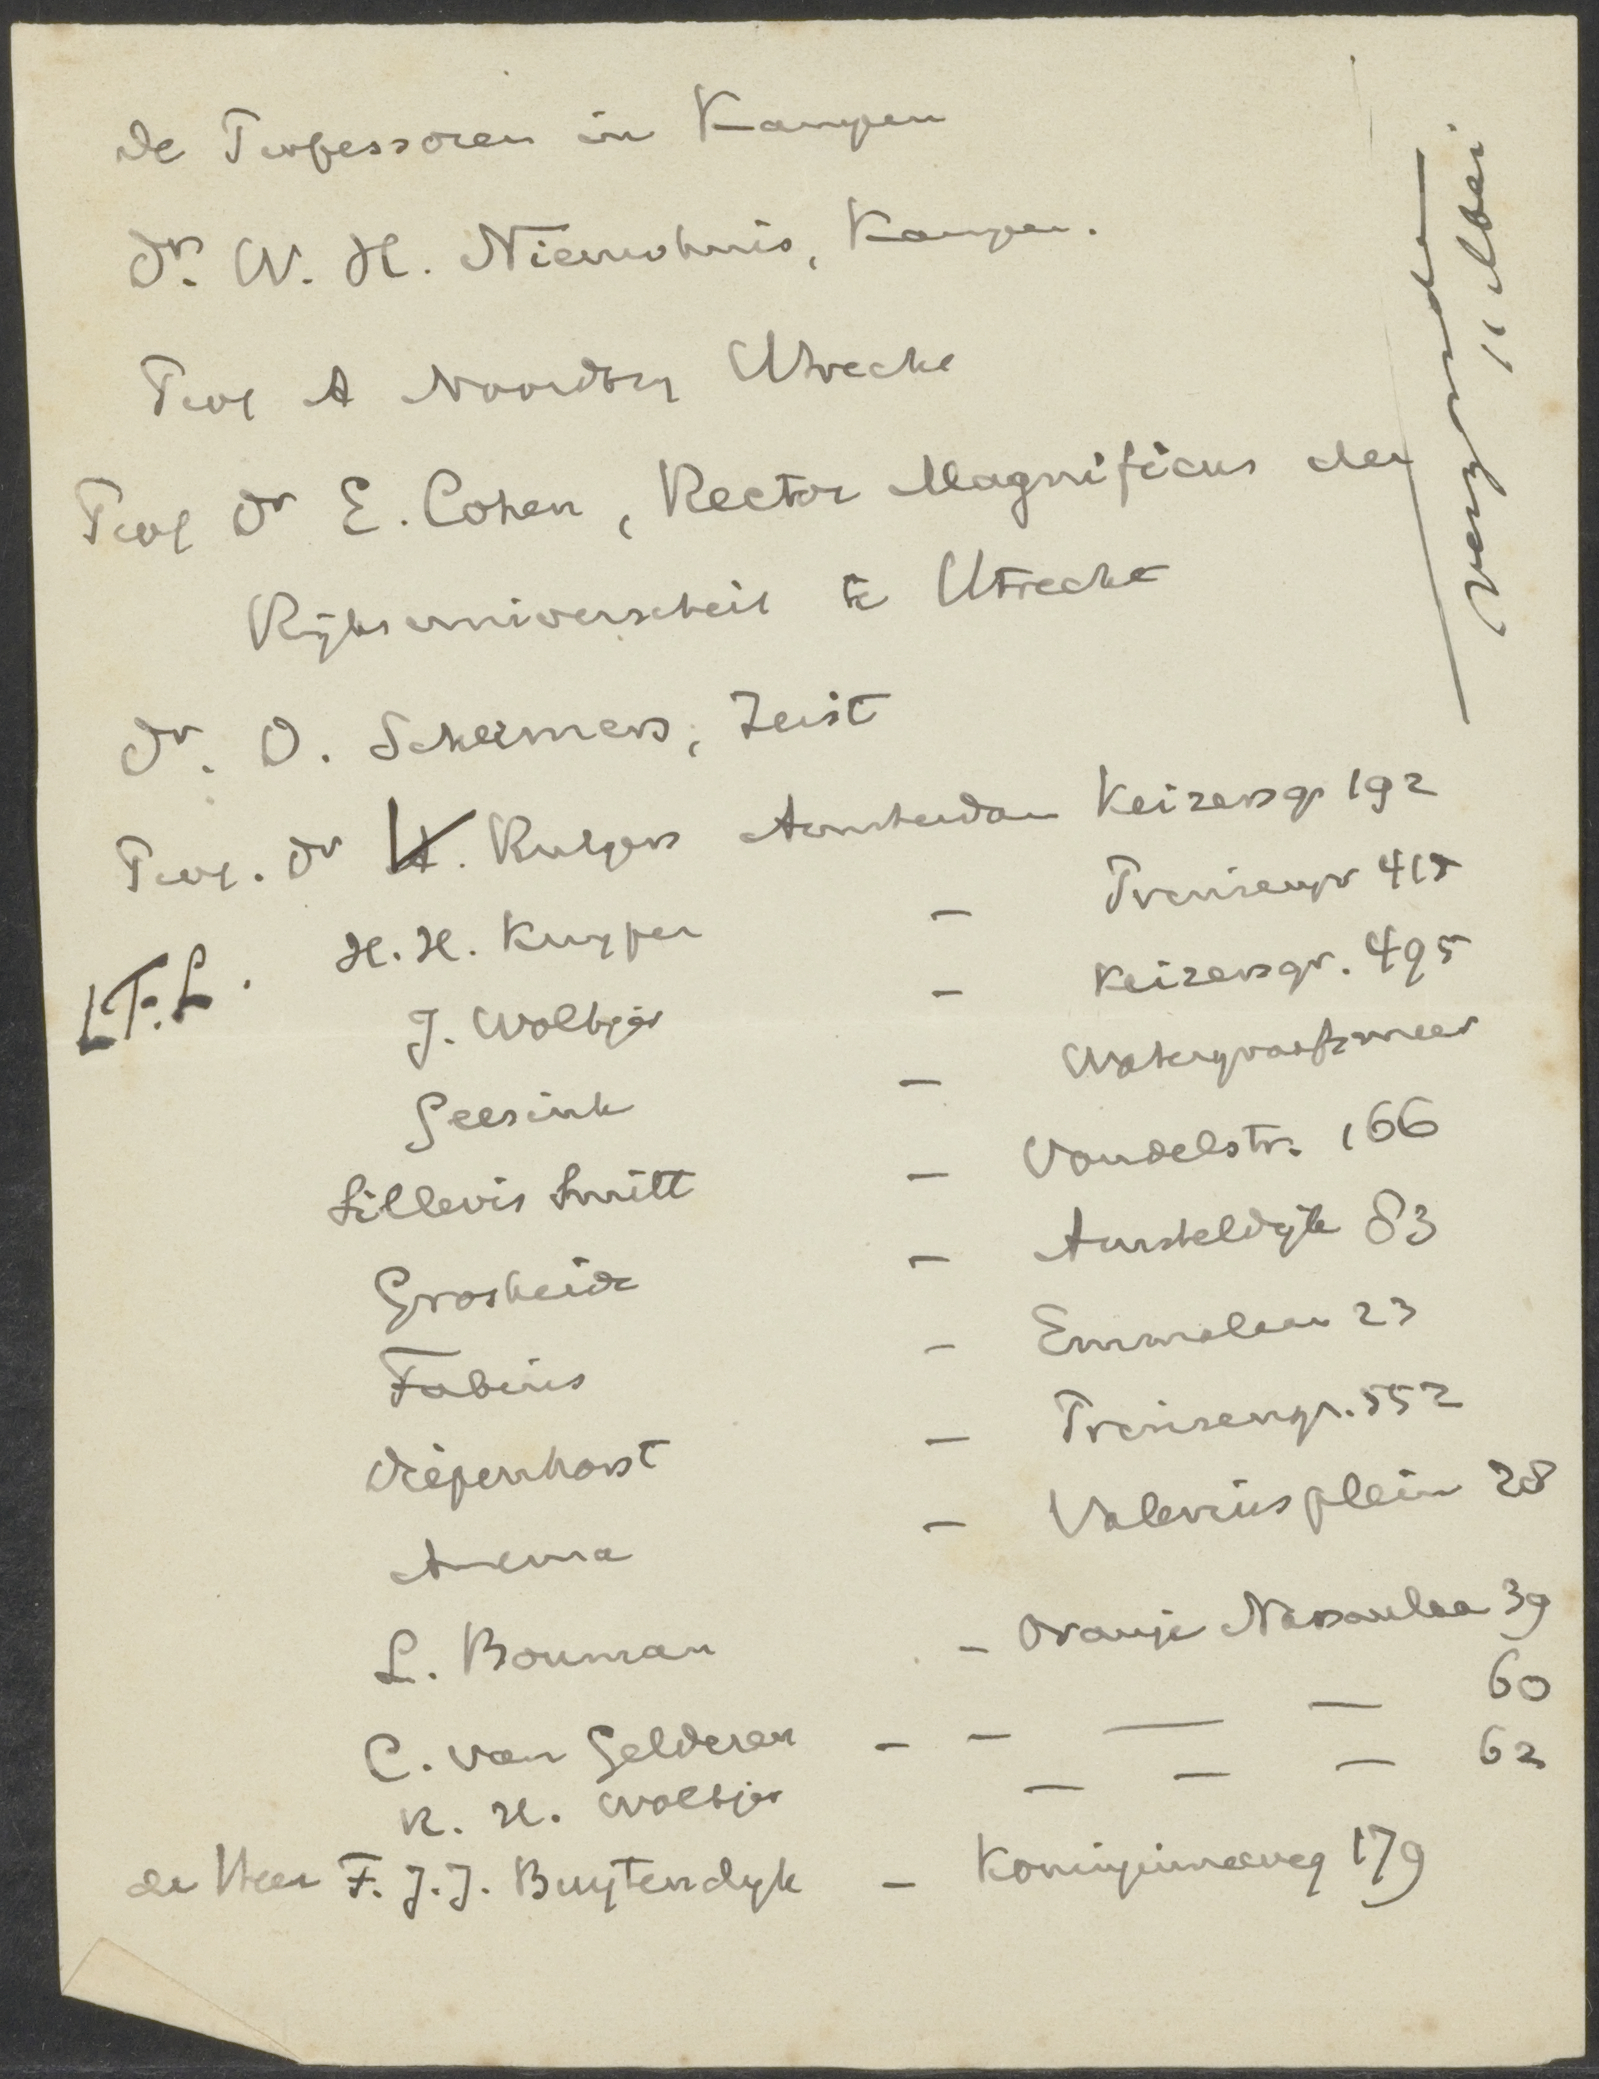 de Professoren in Kampen
Dr. W. H. Nieuwhuis, Kampen.
Prof A Noordtzy Utrecht
Prof Dr E. Cohen, Rector Magnificus der
Rijksuniversiteit te Utrecht
Dr. D. Schermers, Zeist
Prof. Dr H. Rutgers Amsterdam Keizersgr 192
H. H. Kuyper — Prinsengr 415
L F. L.
J. Woltjer — Keizersgr. 495
Geesink — Watergraafsmeer
Sillevis Smitt — Vondelstr. 166
Grosheide — Amsteldijk 83
Fabius — Emmalaan 23
Diepenhorst — Prinsengr. 552
Anema — Valeriusplein 28
L. Bouman — Oranje Nassaulaa 39
C. van Gelderen — — — — 60
R. H. Woltjer — — — 62
de Heer F. J. J. Buytendyk — Koninginneweg 179
verzonden
11 Mei